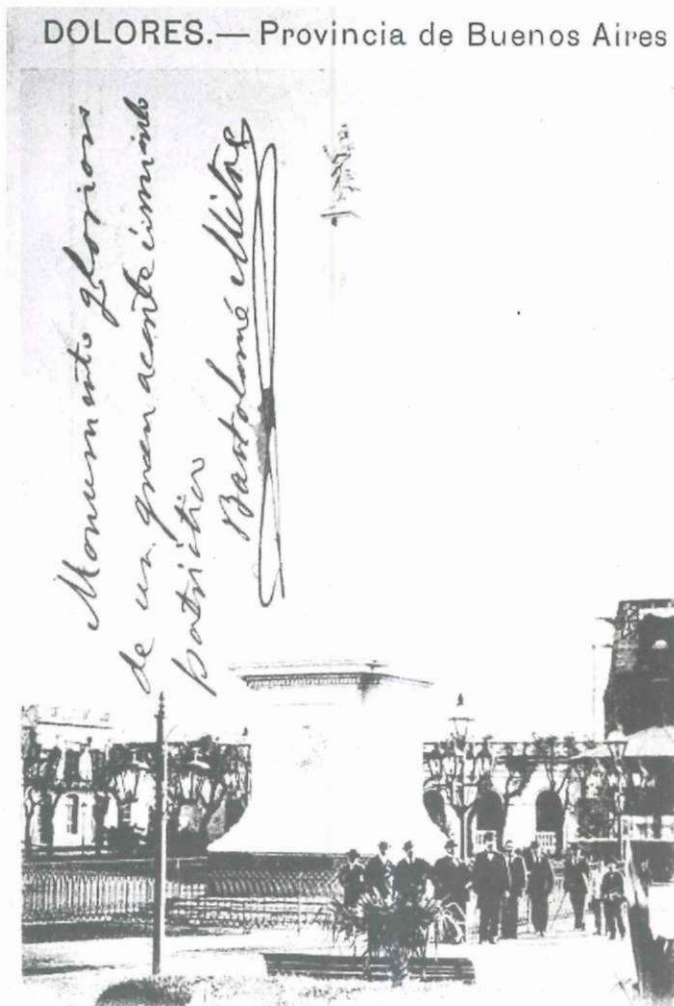 DOLORES.— Provincia de Buenos Aires
Monumento glorioso
de un gran acontecimiento
patriótico
Bartolomé Mitre